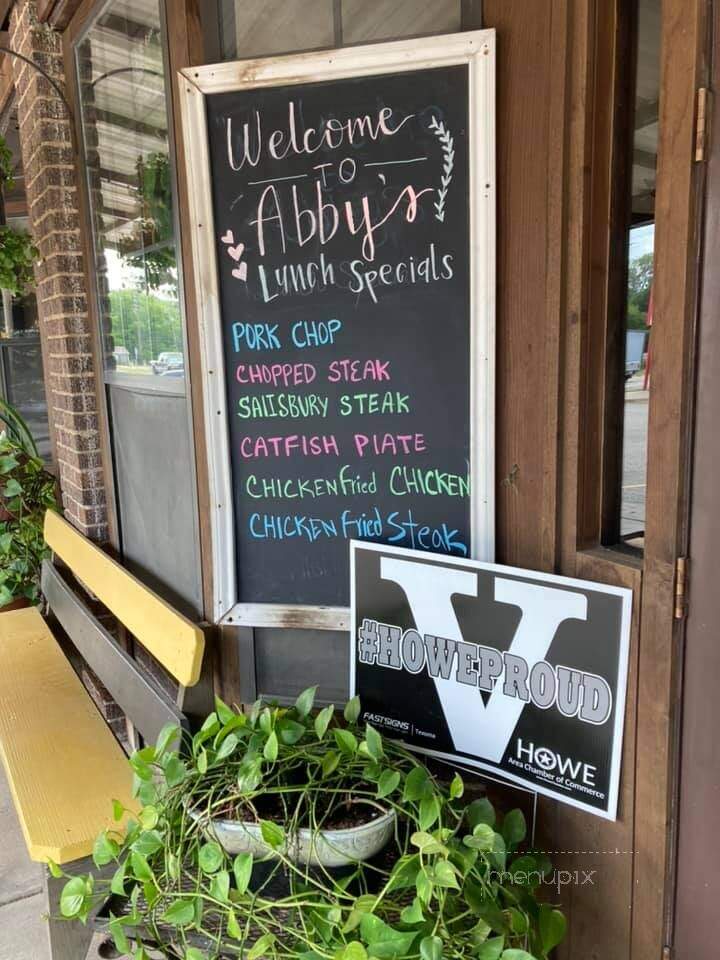 Welcome
TO
Abby's
Lunch Specials
PORK CHOP
CHOPPED STEAK
SALISBURY STEAK
CATFISH PLATE
CHICKEN fried CHICKEN
CHICKEN fried Steak
V
#HOWEPROUD
FASTSIGNS | Texoma
HOWE
Area Chamber of Commerce
menupix